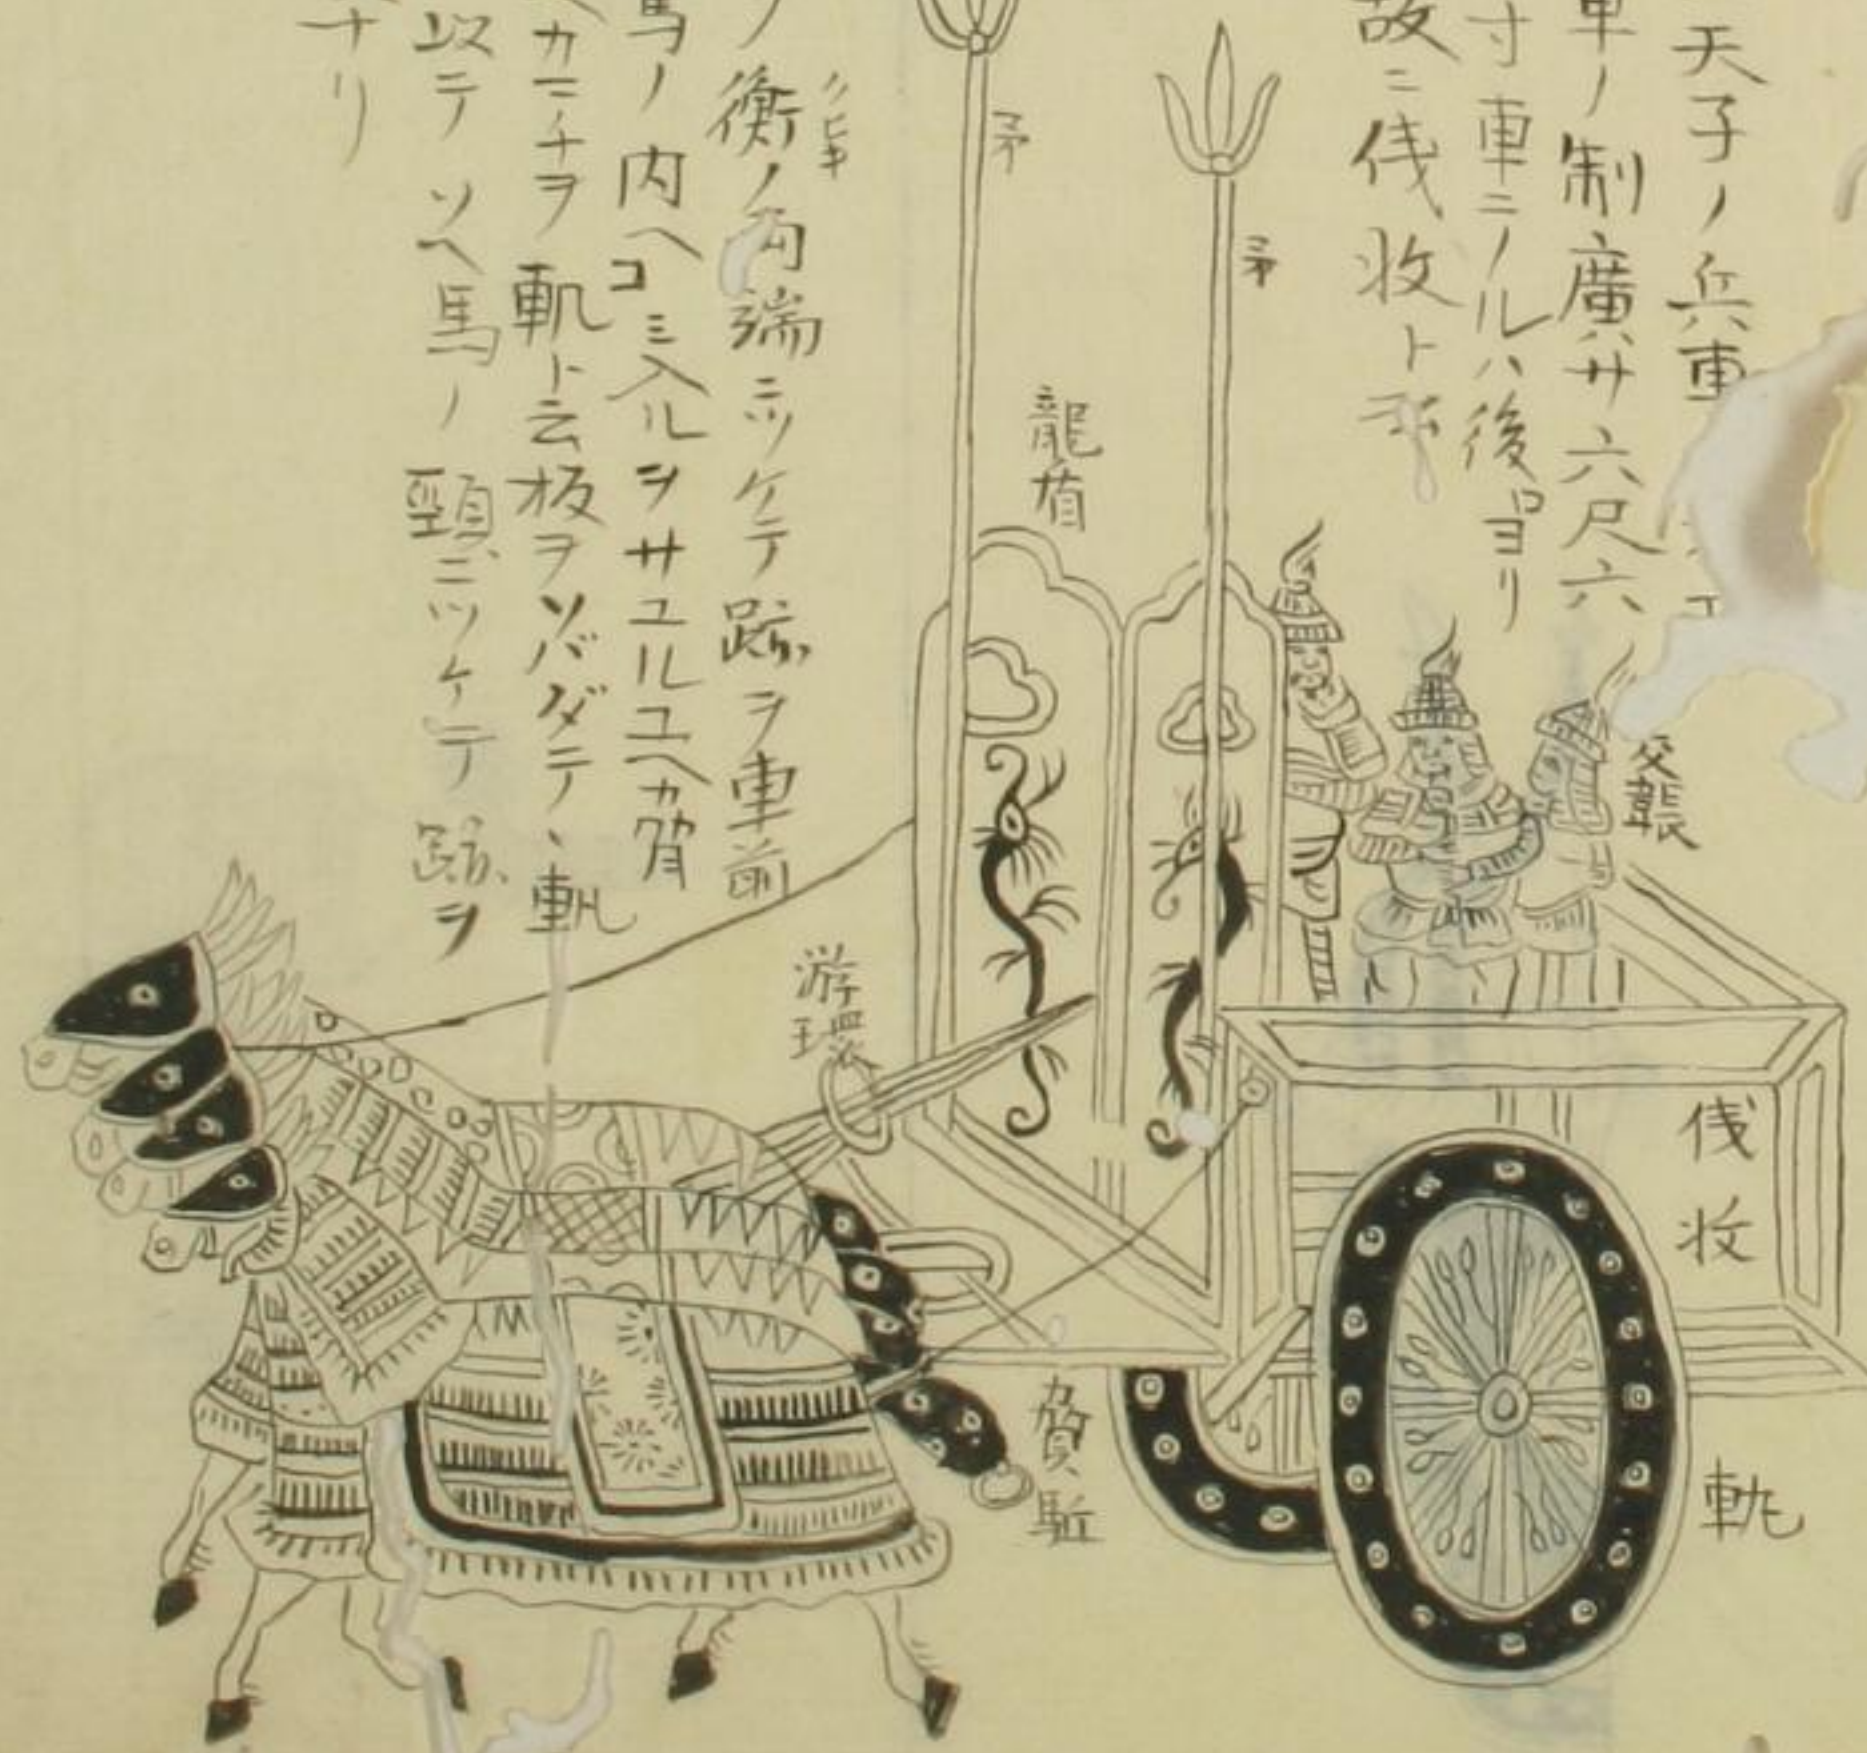 天子ノ兵車
車ノ制廣サ六尺六
寸車ニノルハ後ヨリ
故ニ俴收ト
矛
矛
龍盾
交韔
ノ衡ノ両端ニツケテ跡ヲ車前
馬ノ内ヘコミ入ルヲサユルユヘカ脅
カニナヲ軓ト云板ヲソバダテ、軓
以テソヘ馬ノ頸ニツケテ跡ヲ
ナリ
游環
俴收
脅駈
軓